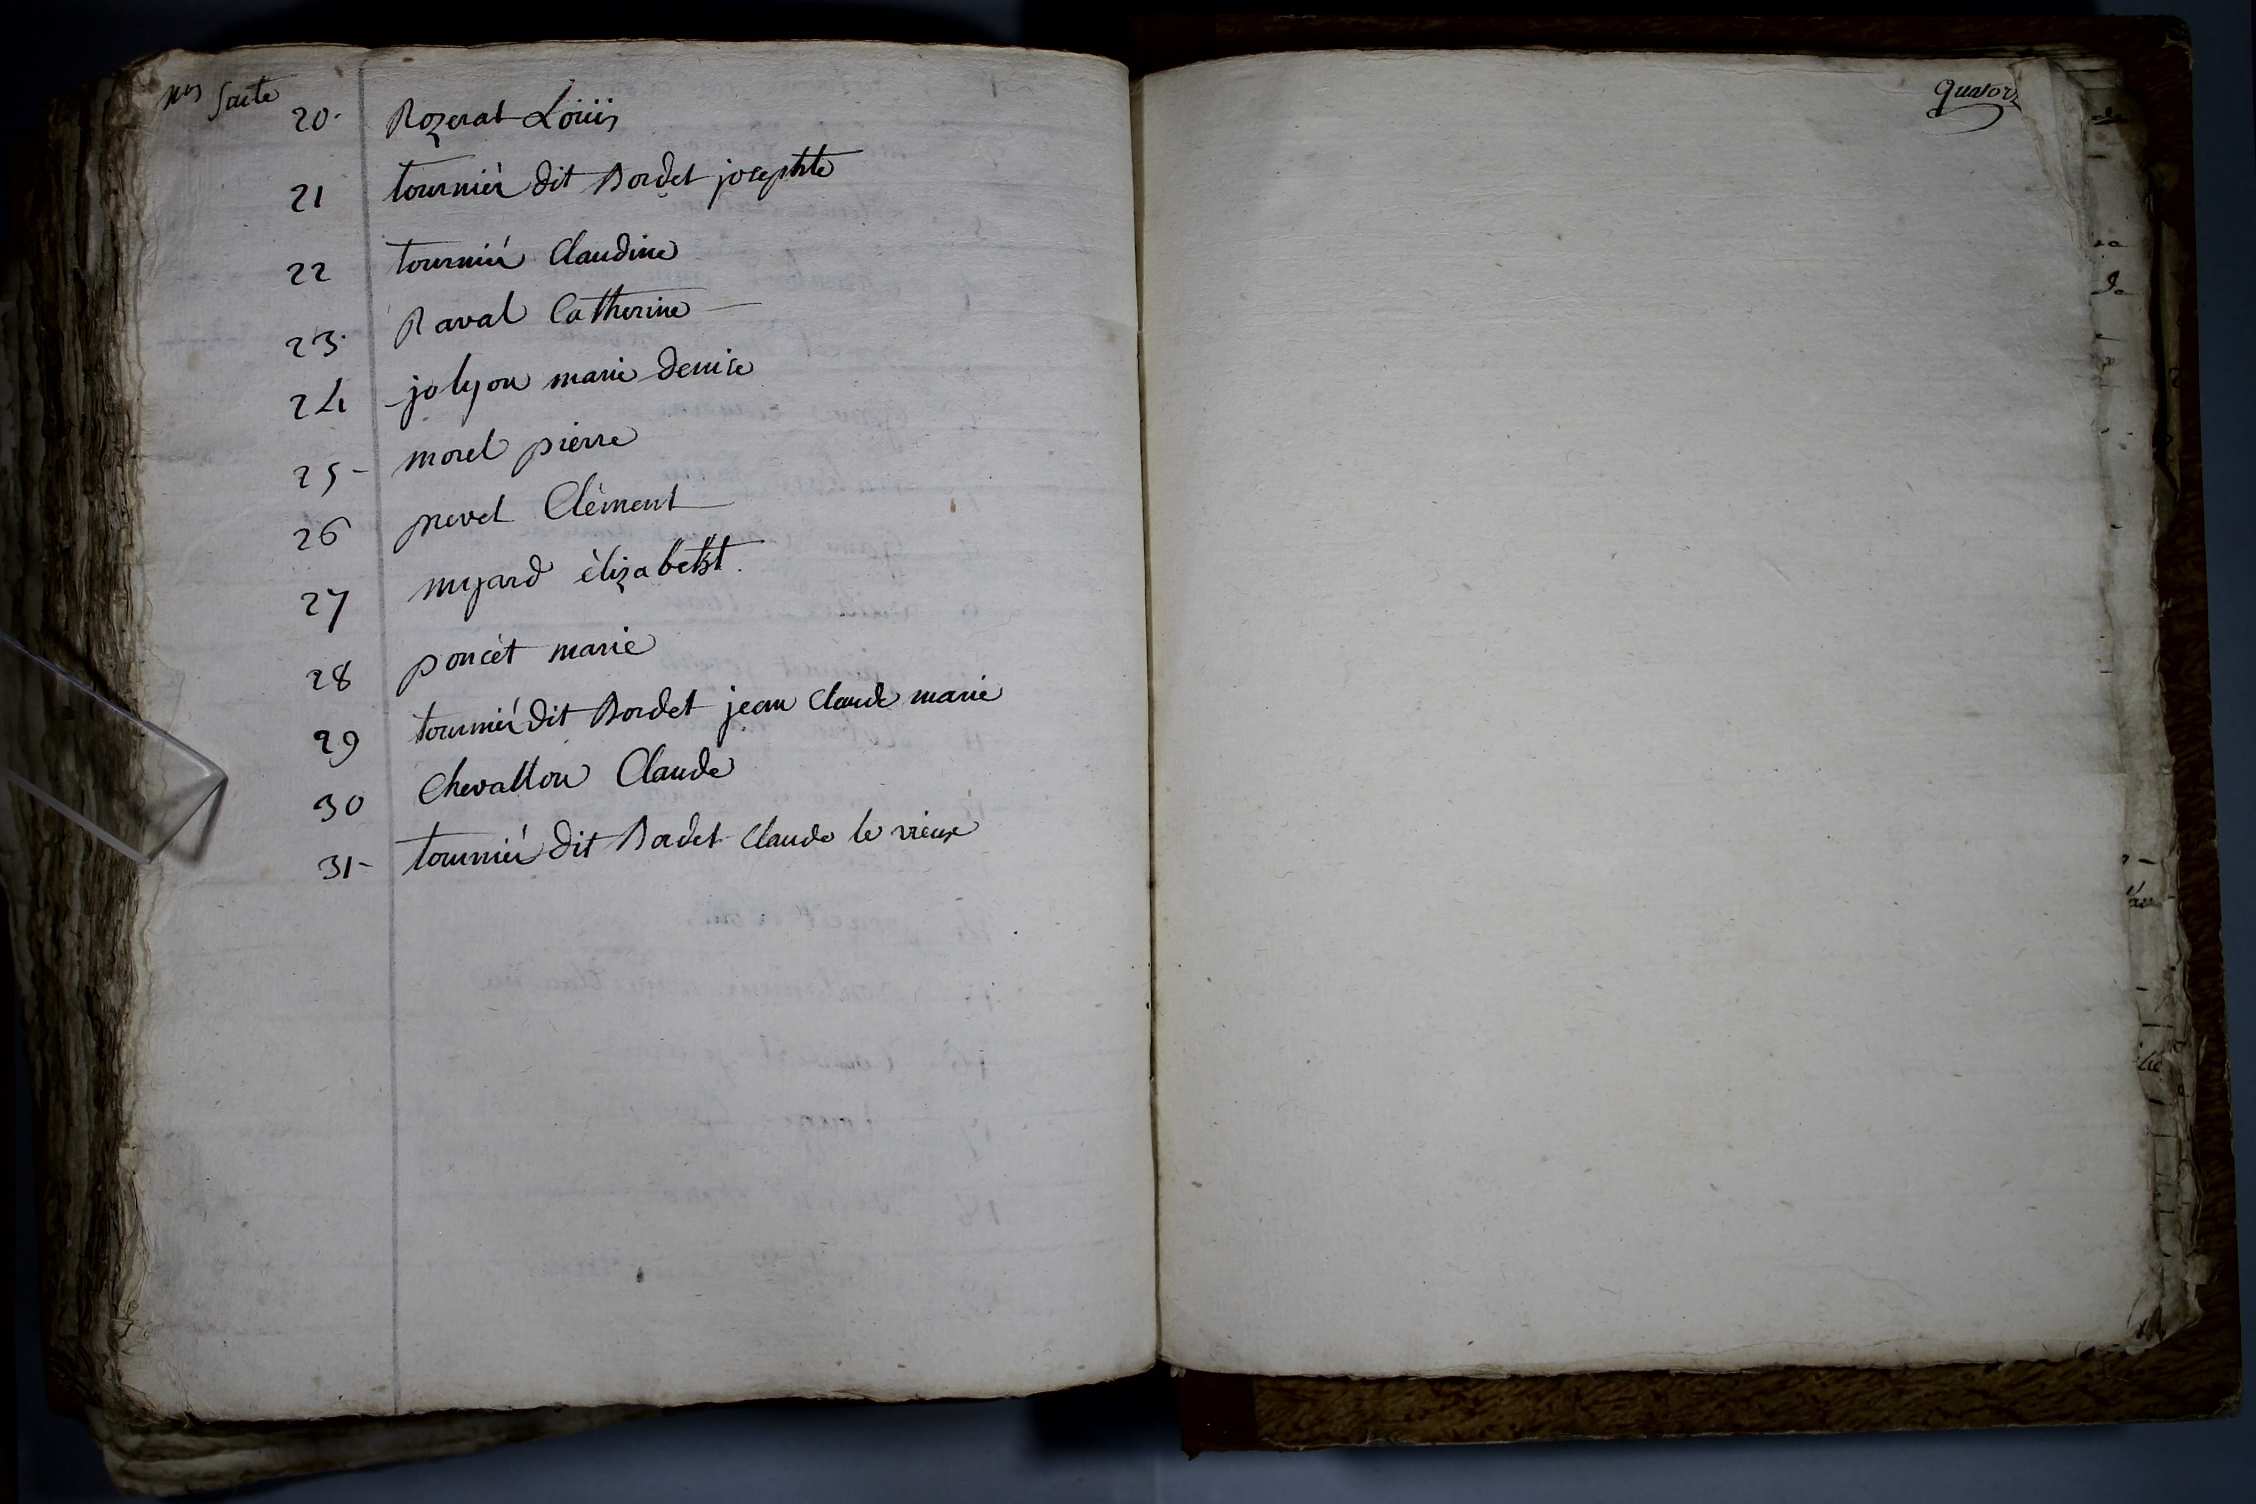 nos Suite
20. Rozerat Loüis
21 tournier dit Bordet josephte
22 tourniér Claudine
23. Raval Catherine
24 jolyon marie denise
25 - morel pierre
26 prevet Clément
27 nuyard élizabetht.
28 poncét marie
29 tourniér dit Bordet jean Claude marie
30 Chevallon Claude
31 - tourniér dit Bordet Claude le vieux
quator